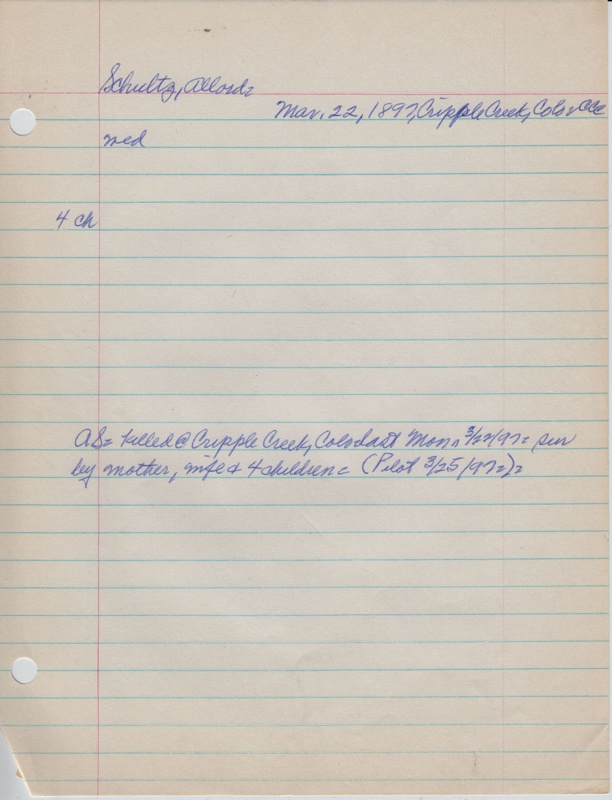 Schultz, Allard=
Mar. 22, 1897, Cripple Creek, Colo=
med
4 ch
AS= killed @ Cripple Creek, Colo last Mon, 3/22/97= sur
by mother, wife & 4 children= (Pilot 3/25/97=)=